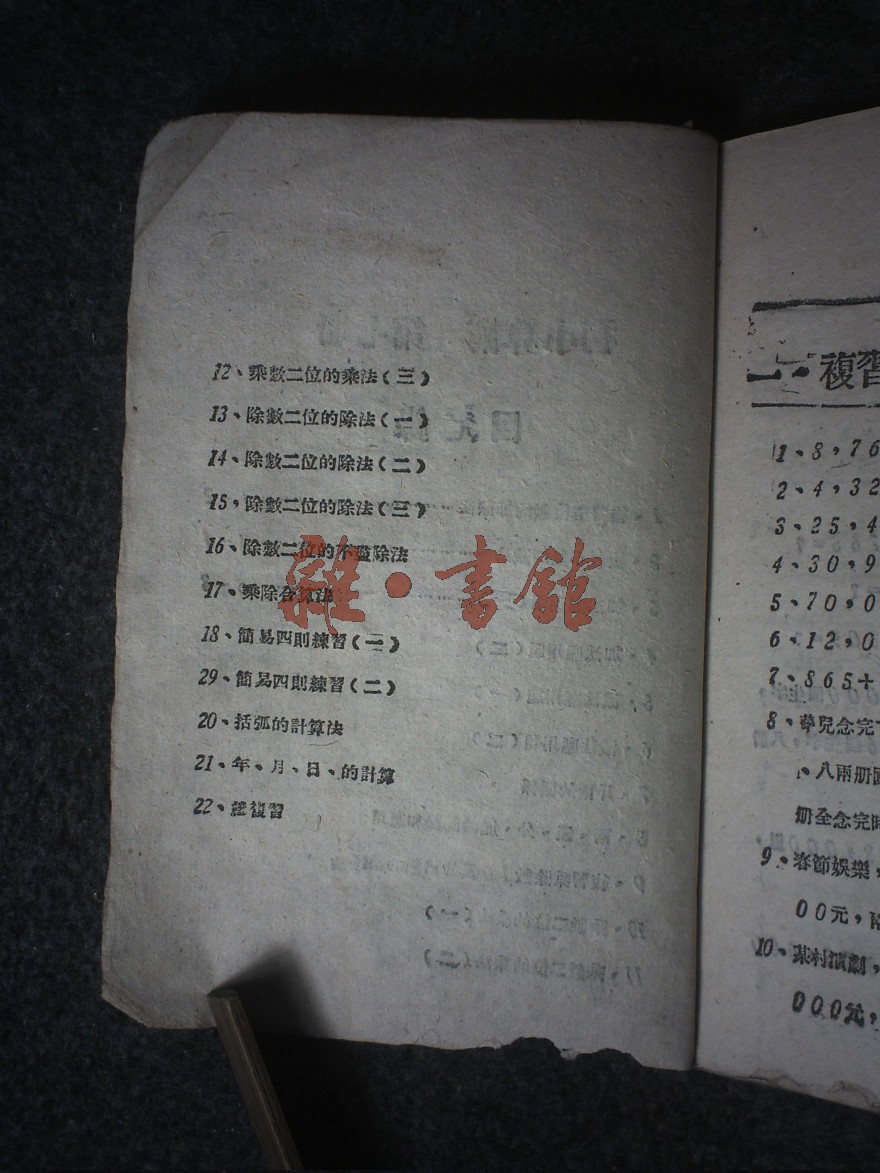 12、乘數二位的乘法(三)
13、除數二位的除法(一)
14、除數二位的除法(二)
15，除數二位的除法(三)
16、除數二位的不盡除法
17、乘除合算法
18、簡易四則練習(一)
29、簡易四則練習(二)
20、括弧的計算法
21、年、月、日、的計算
22、總複習
雜·書館
一·複習
1、8，76
2、4，32
3、25，4
4、30，9
5、70，0
6、12，0
7、865+
8、
兒念完
、八兩册
册全念完時
9、春節娛樂，
00元，
10、某村演劇，
000元，